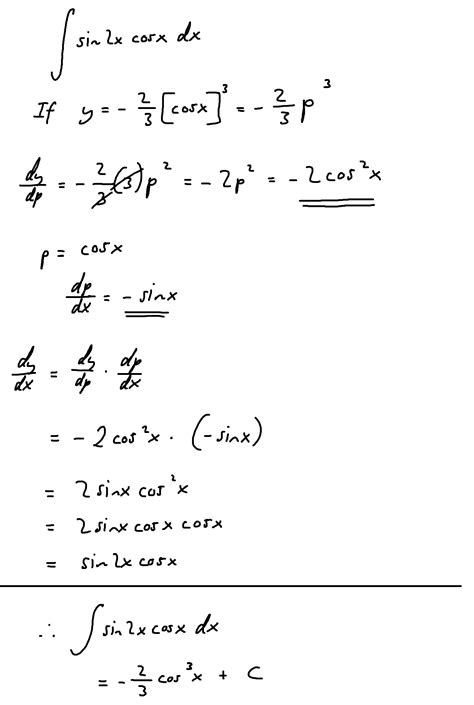 ∫ sin2x cosx dx
If y = - 2/3 [cosx]³ = - 2/3 p³
dy/dp = - 2/3 (3) p² = - 2p² = - 2cos²x
p = cosx
dp/dx = - sinx
dy/dx = dy/dp · dp/dx
= - 2 cos²x · (-sinx)
= 2 sinx cos²x
= 2 sinx cosx cosx
= sin2x cosx
∴ ∫ sin2x cosx dx
= - 2/3 cos³x + C